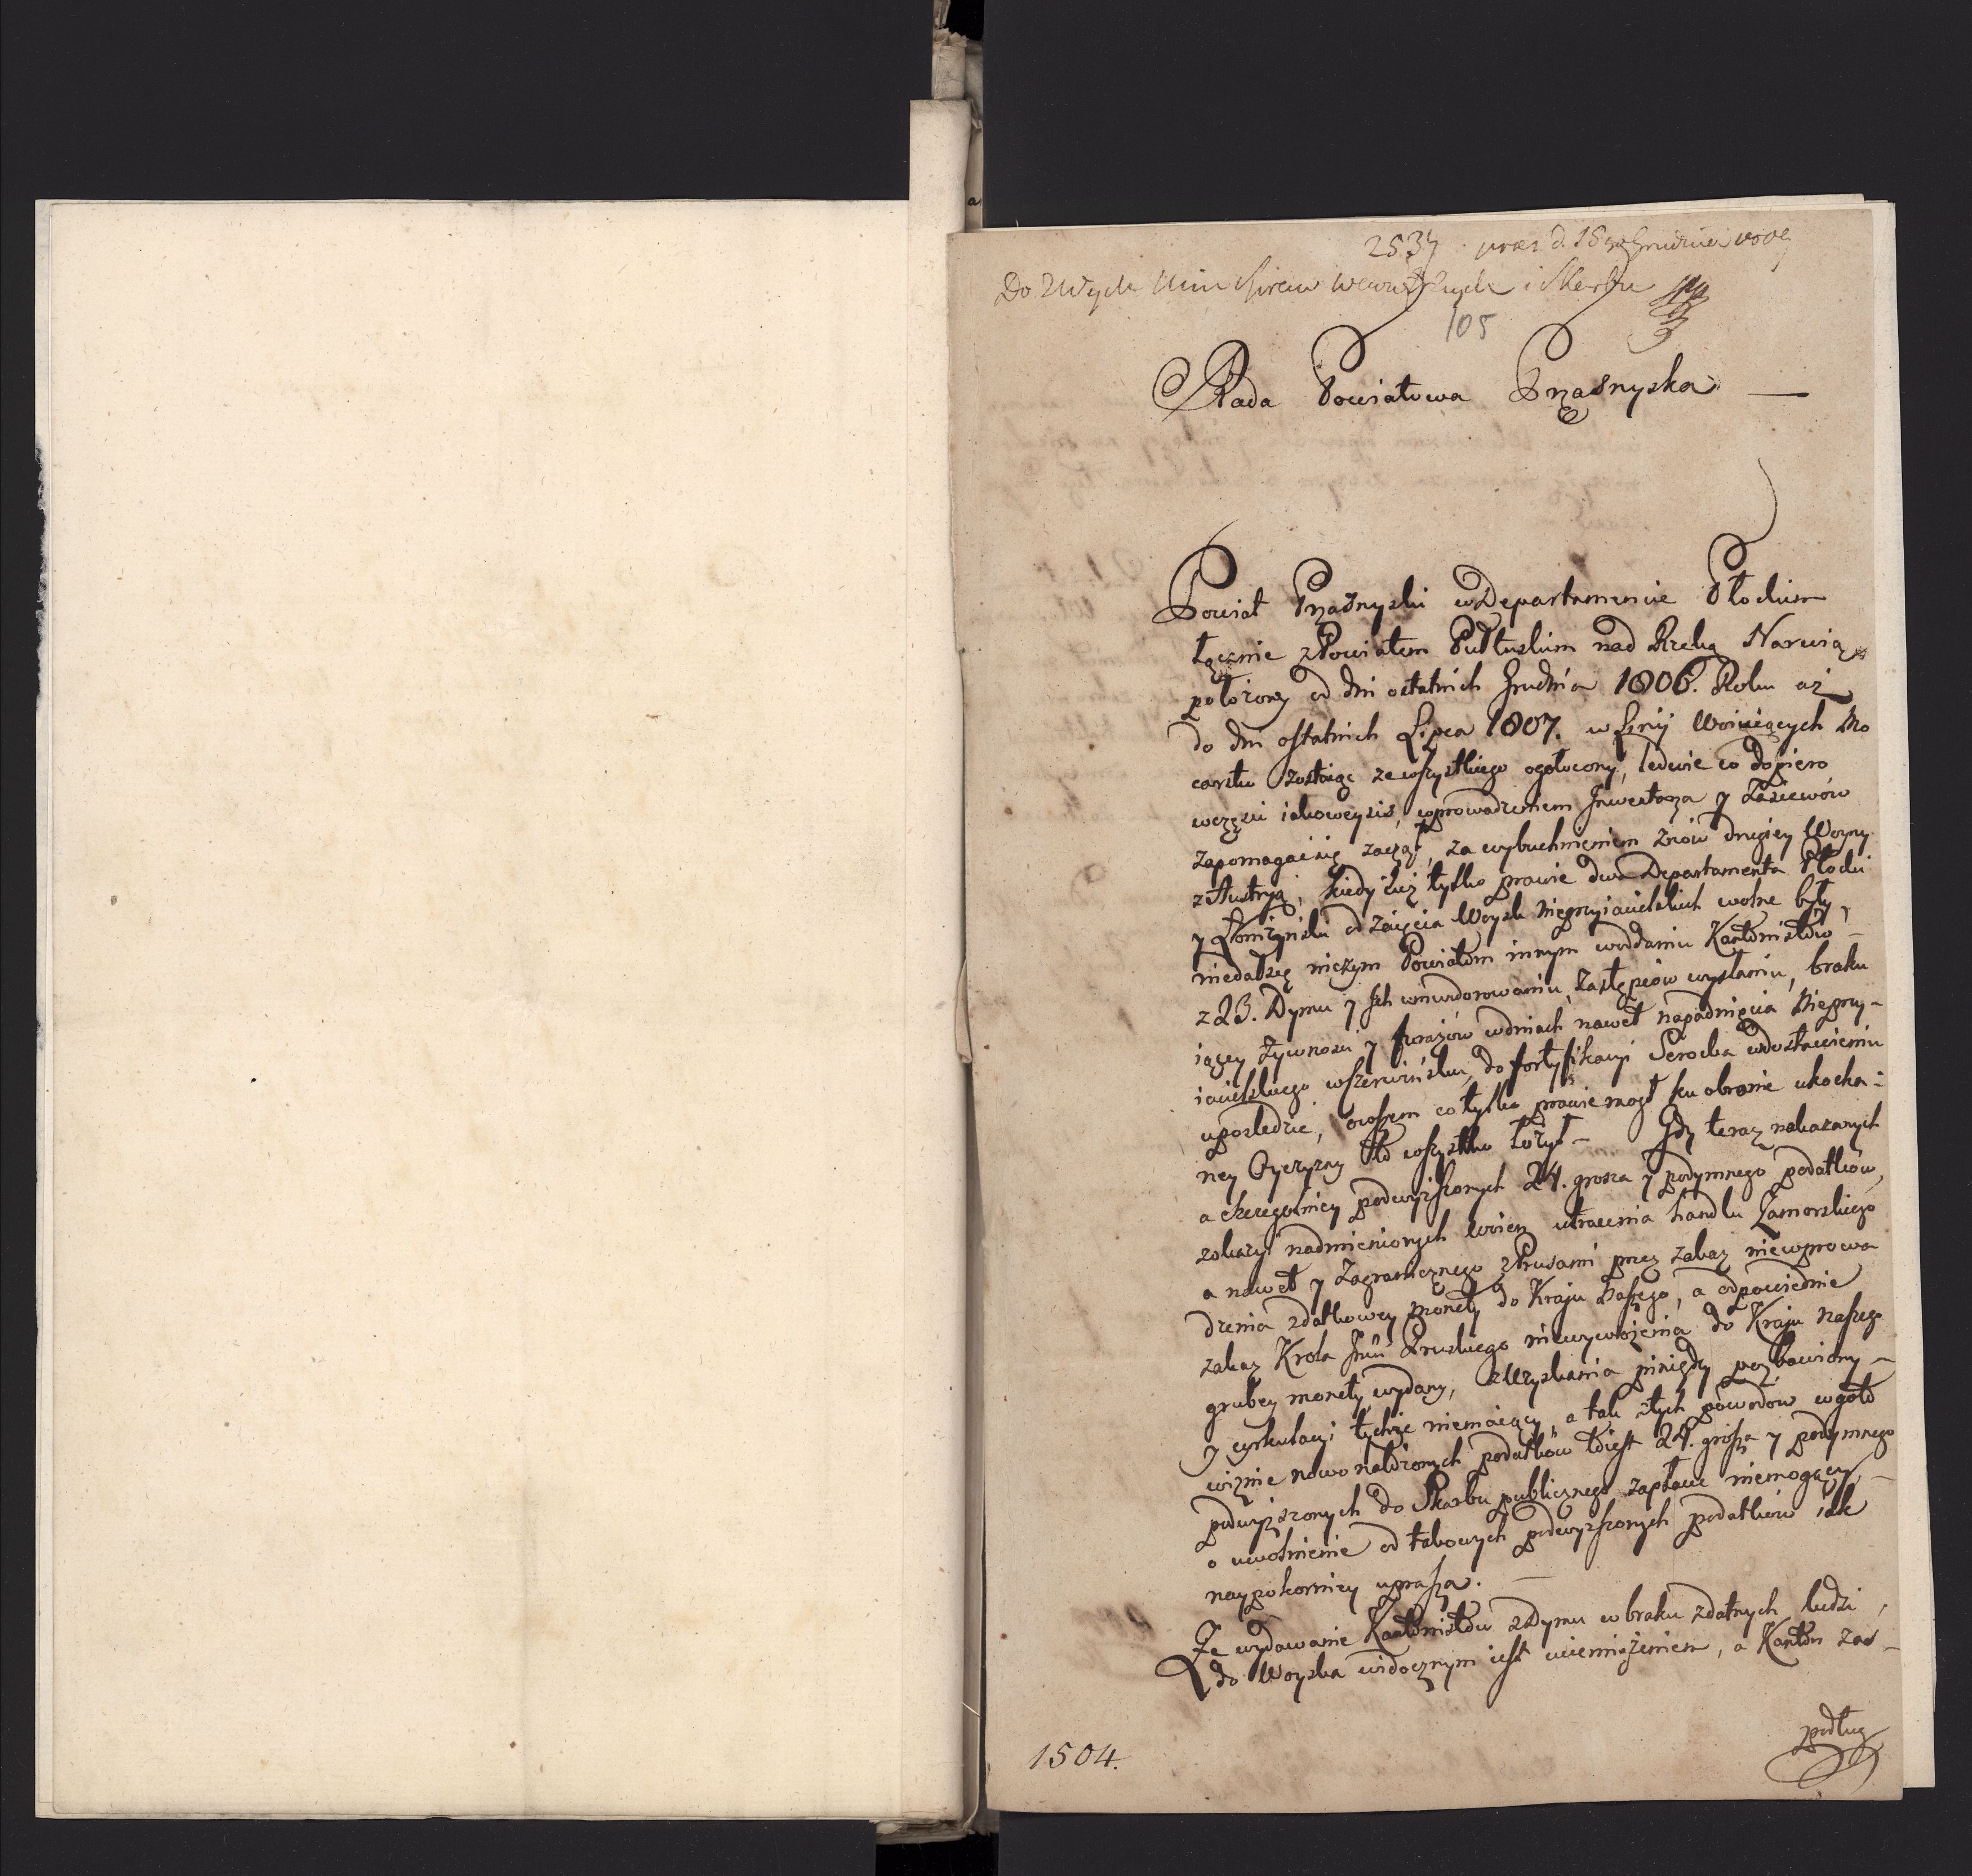 2534 praes d. 15 Grudnia 1809
Do Wych Min Spraw Wewnętrznych i Skarbu
105
Rada Powiatowa Przasnyska —
Powiat Przasnyski w Departamencie Płockim
łącznie z Powiatem Pułtuskim nad Rzeką Narwią
położony od dni ostatnich Grudnia 1806. Roku aż
do dni ostatnich Lipca 1807. w Linij Woiuiących Mo
carstw zostaiąc ze wszystkiego ogołocony, ledwie co dopiero
w części iakoweysiś, wprowadzeniem Inwentarza y Zasiewów
zapomagać się zaczął, za wybuchnieniem znów drugiey Woyny
z Austryą, kiedy iuż tylko prawie dwa Departamenta Płocki
y Łomżyński od zaięcia Woysk nieprzyiacielskich wolne były,
niedał się niczym Powiatom innym w oddaniu Kantonistów –
z 23. Dymu y Ich umundorowaniu, Zastępców wysłaniu, braku
iącey żywności y furażów w dniach nawet napadnięcia Nieprzy-
iacielskiego w Szereńsku, do fortyfikacyi Serocka w dostawieniu
upośledzić, owszem co tylko prawie mogł ku obronie ukocha-
ney Oyczyzny to wszystko łożył – Gdy teraz nakazanych
a szczegolniey podwyższonych 24. grosza y podymnego podatków,
z okazyi nadmienionych Woien utracenia handlu Zamorskiego
a nawet y Zagranicznego z Prusami przez zakaz niewprowa
dzenia zdatkowey monety do Kraju Naszego, a odpowiednie
zakaz Krola Jmci Pruskiego niewywożenia do Kraju naszego
grubey monety wydany, zUzyskania pieniędzy pozbawiony –
y cyrkulacyi tychże niemaiący, a tak z tych powodów w goto
wiznie nowo nałożonych podatków to iest 24. grosza y podymnego
podwyższonych do Skarbu publicznego zapłacić niemogący –
o uwolnienie od takowych podwyższonych podatków iak
naypokorniey uprasza. —
Że wydawanie Kantonistów z Dymu w braku zdatnych ludzi,
do Woyska widocznym iest uciemiężeniem, a Kanton zaś –
podług
1504.